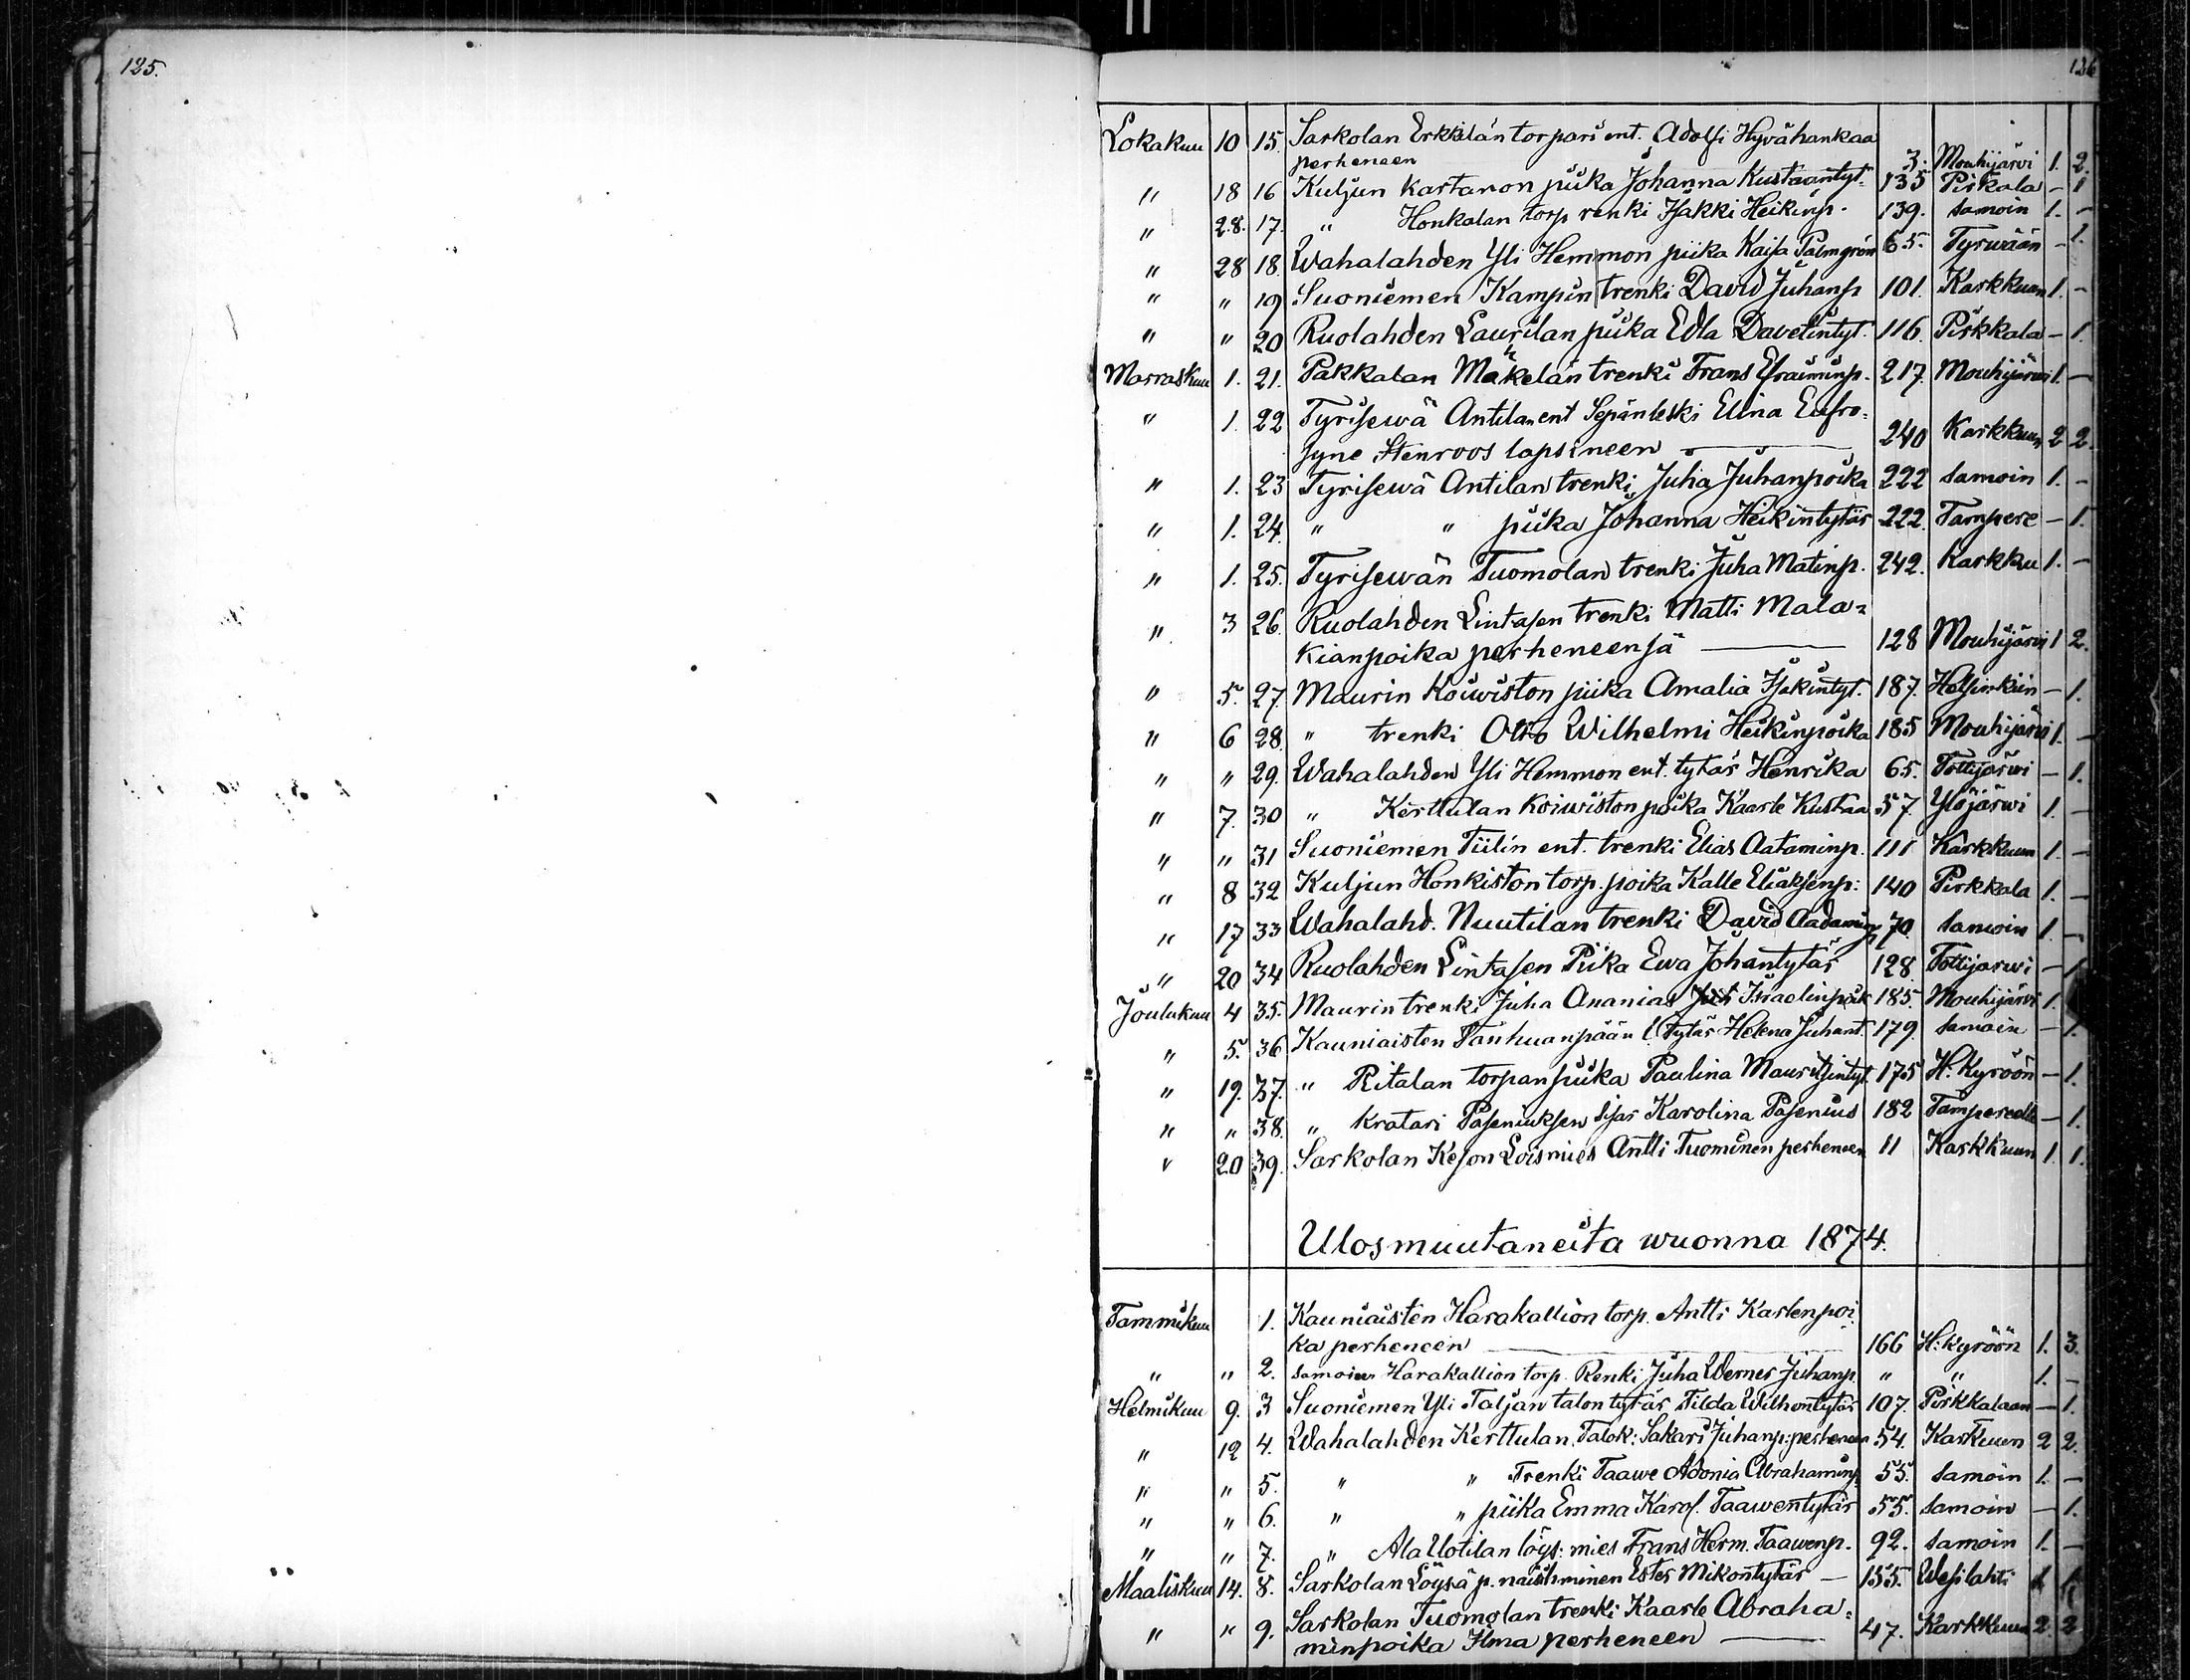 125.
126
Lokakuu 10 15. Sarkolan Erkkilän torpari ent. Adolfi Hyvähankaa
perheneen 3. Mouhijärvi 1. 2.
" 18 16 Kuljun kartanon piika Johanna Kustaantyt. 135 Pirkala - 1
" 28. 17. " Honkalan torp renki Isakki Heikinp. 139. samoin 1. -
" 28 18. Wahalahden Yli Hemmon piika Kaisa Palmgrén 65. Tyrwään - 1.
" " 19 Suoniemen Kampin trenki David Juhanp 101. Karkkuun 1. -
" " 20 Ruolahden Laurilan piika Edla Davetintyt. 116. Pirkkala - 1.
Marraskuu 1. 21. Pakkalan Mäkelän trenki Frans Efraiminp. 217. Mouhijärwi 1. -
" 1. 22 Tyrisewä Antilan ent Sepänleski Elina Eufro-
syne Stenroos lapsineen 240 Karkkuun 2 2.
" 1. 23 Tyrisewä Antilan trenki Juha Juhanpoika 222 samoin 1. -
" 1. 24. " " piika Johanna Heikintytär 222. Tampere - 1.
" 1. 25. Tyrisewän Tuomolan trenki Juha Matinp. 242. Karkku 1. -
" 3 26. Ruolahden Lintasen trenki Matti Mala-
kianpoika perheneensä 128 Mouhijärvi 1 2.
" 5. 27. Maurin Koiwiston piika Amalia Isakintyt. 187. Helsinkiin - 1.
" 6 28. " trenki Otto Wilhelmi Heikinpoika 185 Mouhijärvi 1. -
" " 29. Wahalahden Yli Hemmon ent. tytär Henrika 65. Tottijärwi - 1.
" 7. 30 " Kerttulan Koiwiston poika Kaarle Kustaa 57. Ylöjärwi 1. -
" " 31 Suoniemen Tiilin ent. trenki Elias Aataminp. 111 Karkkuun 1. -
" 8 32 Kuljun Honkiston torp. poika Kalle Eliaksenp: 140 Pirkkala 1. -
" 17 33 Wahalahd. Nuutilan trenki David Aadaminp 70. samoin 1. -
" 20 34 Ruolahden Lintasen Piika Ewa Johantytär 128 Tottijarwi - 1
Joulukuu 4 35. Maurin trenki Juha Ananias Israelinpoik 185. Mouhijärvi 1.
" 5. 36 Kauniaisten Tanhuanpään tytär Helena Juhant. 179. samoin - 1.
" 19. 37. " Ritalan torpan piika Paulina Mauritzintyt. 175 H: Kyröön - 1.
" " 38. " kratari Paseniuksen sisar Karolina Pasenius 182 Tampereelle - 1.
" 20 39. Sarkolan Keson Loismies Antti Tuominen perheneen 11 Karkkuun 1. 1.
Ulosmuutaneita wuonna 1874.
Tammikuu 1. Kauniaisten Harakallion torp. Antti Karlenpoi
ka perheneen 166 H: kyröön 1. 3.
" " 2. samoin Harakallion torp. Renki Juha Werner Juhanp. " " 1. -
Helmikuu 9. 3 Suoniemen Yli Taljan talon tytär Tilda Wilhontytär 107. Pirkkalaan - 1.
" 12 4. Wahalahden Kerttulan Talok: Sakari Juhanp: perheneen 54. Karkuun 2 2.
" " 5. " " Trenki Taawe Adonia Abrahaminp. 55. samoin 1. -
" " 6. " " piika Emma Karol. Taawentytär 55. samoin - 1.
" " 7. " Ala Uotilan löys: mies Frans Herm. Taawenp. 92. samoin 1. -
Maaliskuu 14. 8. Sarkolan Löysä p. naisihminen Ester Mikontytär 155. Wesilahti
" " 9. Sarkolan Tuomolan trenki Kaarle Abraha-
minpoika Ilma perheneen 47. Karkkuun 2. 2